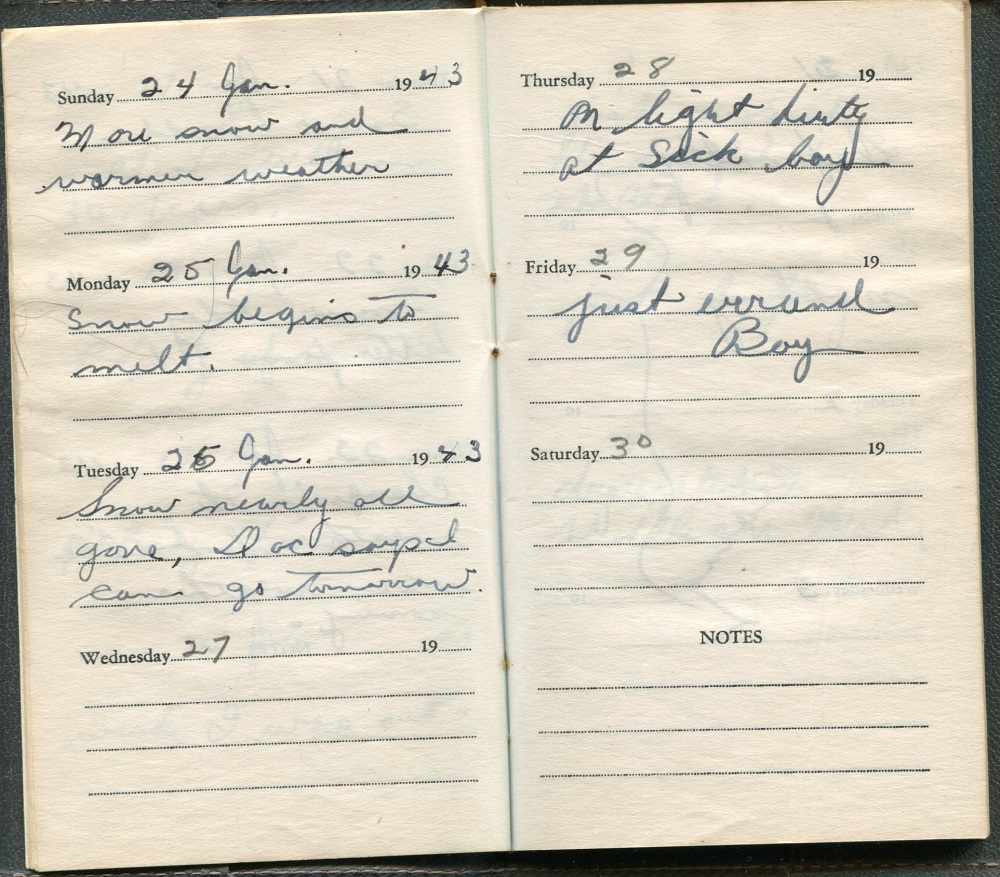 Sunday 24 Jan. 1943
More snow and
warmer weather
Monday 25 Jan. 1943
Snow begins to
melt.
Tuesday 26 Jan. 1943
Snow nearly all
gone, Doc says I
can go tomorrow.
Wednesday 27 19
Thursday 28 19
On light duty
at Sick bay
Friday 29 19
just errand
Boy
Saturday 30 19
NOTES